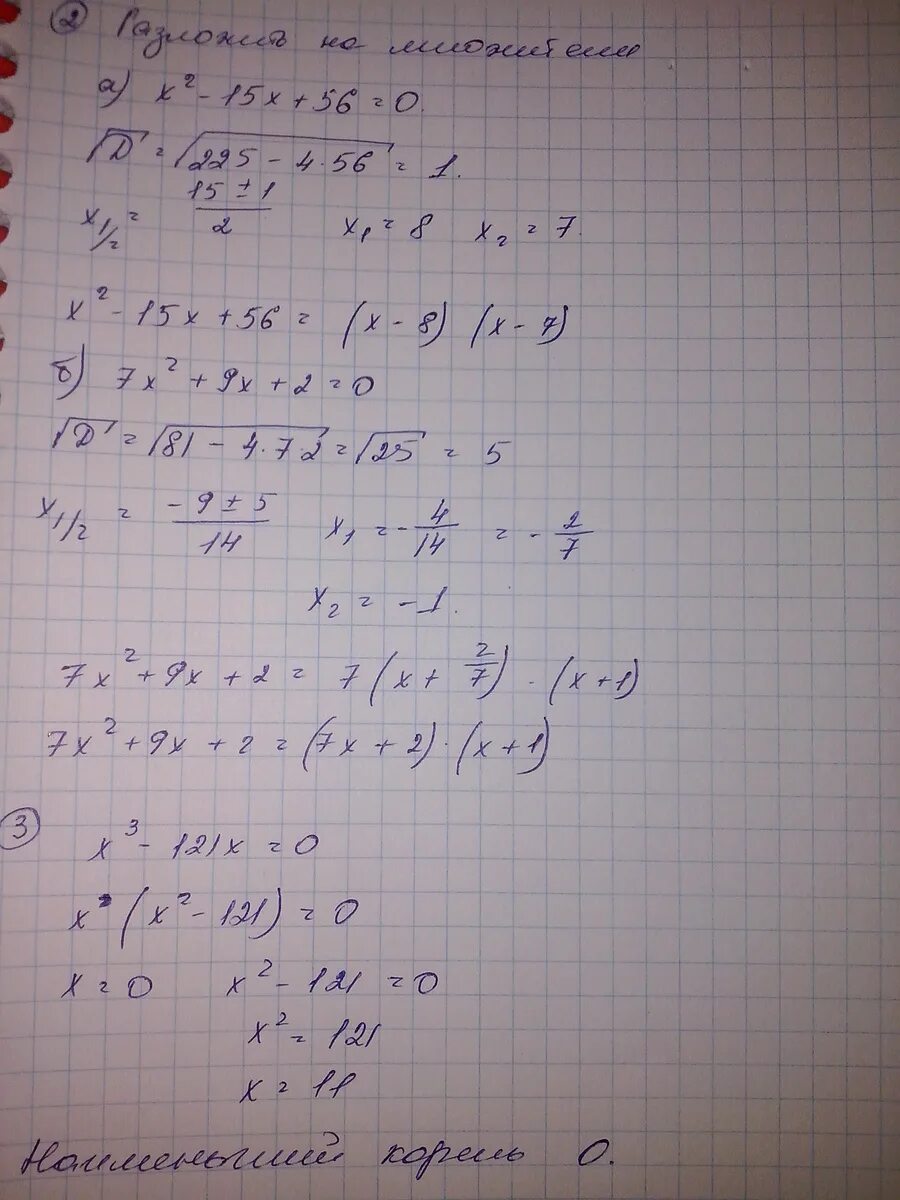 ② Разложить на множители
а) x² - 15x + 56 = 0.
√D = √225 - 4·56 = 1.
x₁/₂ = (15 ± 1)/2 x₁ = 8 x₂ = 7.
x² - 15x + 56 = (x - 8) (x - 7)
б) 7x² + 9x + 2 = 0
√D = √81 - 4·7 2 = √25 = 5
x₁/₂ = (-9 ± 5)/14 x₁ = -4/14 = -2/7
x₂ = -1.
7x² + 9x + 2 = 7 (x + 2/7) · (x + 1)
7x² + 9x + 2 = (7x + 2) · (x + 1)
③ x³ - 121x = 0
x (x² - 121) = 0
x = 0 x² - 121 = 0
x² = 121
x = 11
Наименьший корень 0.